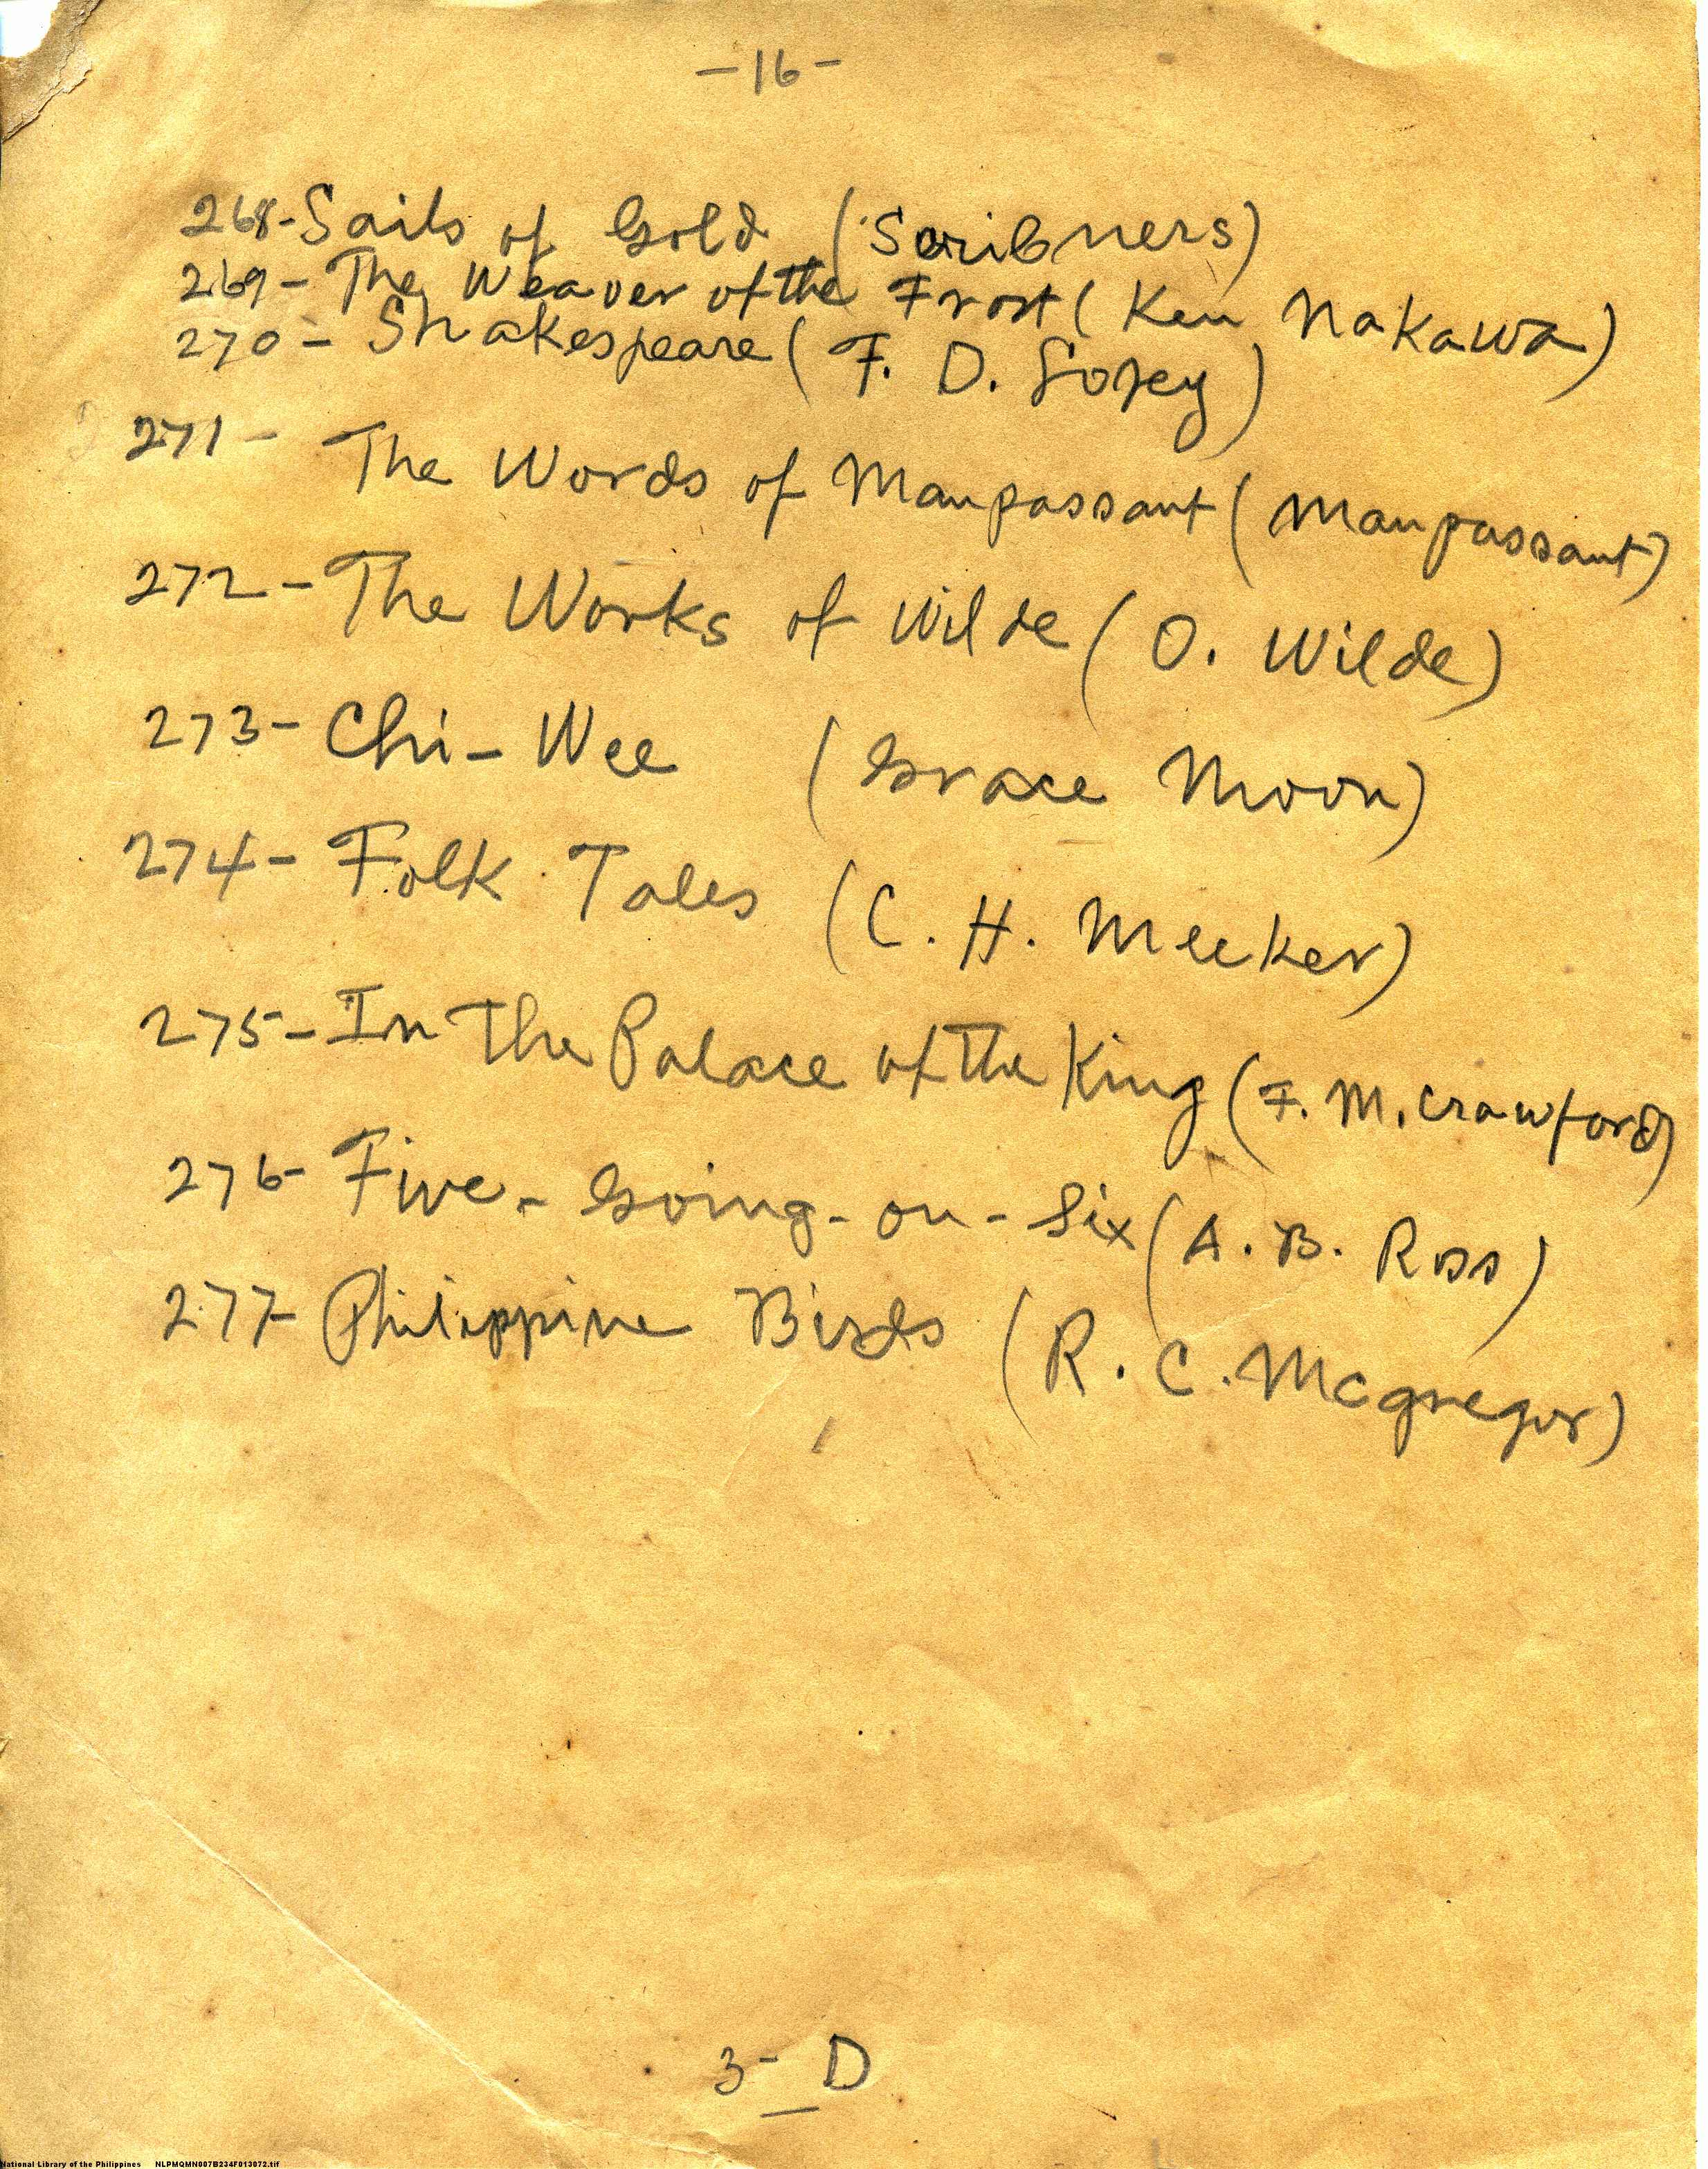 -16-
268-Sails of Gold (Scribners)
269- The Weaver of the Frost (Ken Nakawa)
270- Shakespeare (F. D. Losey)
271- The Words of Maupassant (Maupassant)
272- The Works of Wilde (O. Wilde)
273- Chi-Wee (Grace Moon)
274- Folk Tales (C. H. Meeker)
275- In The Palace of the King (F. M. Crawford)
276- Five-Going-on-Six (A. B. Ross)
277- Philippine Birds (R. C. Mcgregor)
3- D
National Library of the Philippines NLPMQMN007B234F013072.tif